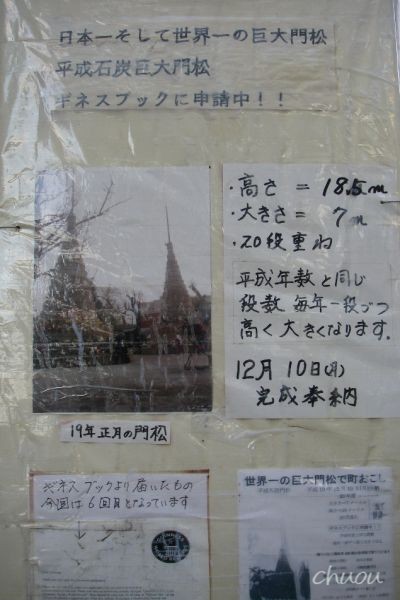 日本一そして世界一の巨大門松
平成石炭巨大門松
ギネスブックに申請中!!
・高さ = 18.5m
・大きさ = 7m
・20段重ね
平成年数と同じ
段数 毎年一段づつ
高く大きくなります。
12月10日(月)
完成奉納
19年正月の門松
ギネスブックより届いたもの
今回は6回目となっています
世界一の巨大門松で町おこし
chuou